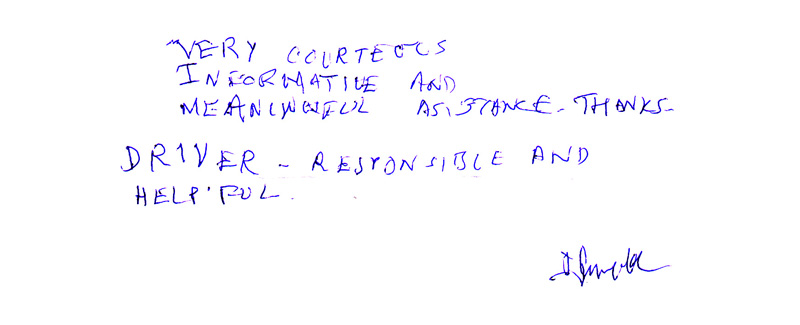 VERY COURTEOUS
INFORMATIVE AND
MEANINGFUL ASISTANCE - THANKS -
DRIVER - RESPONSIBLE AND
HELPFUL.